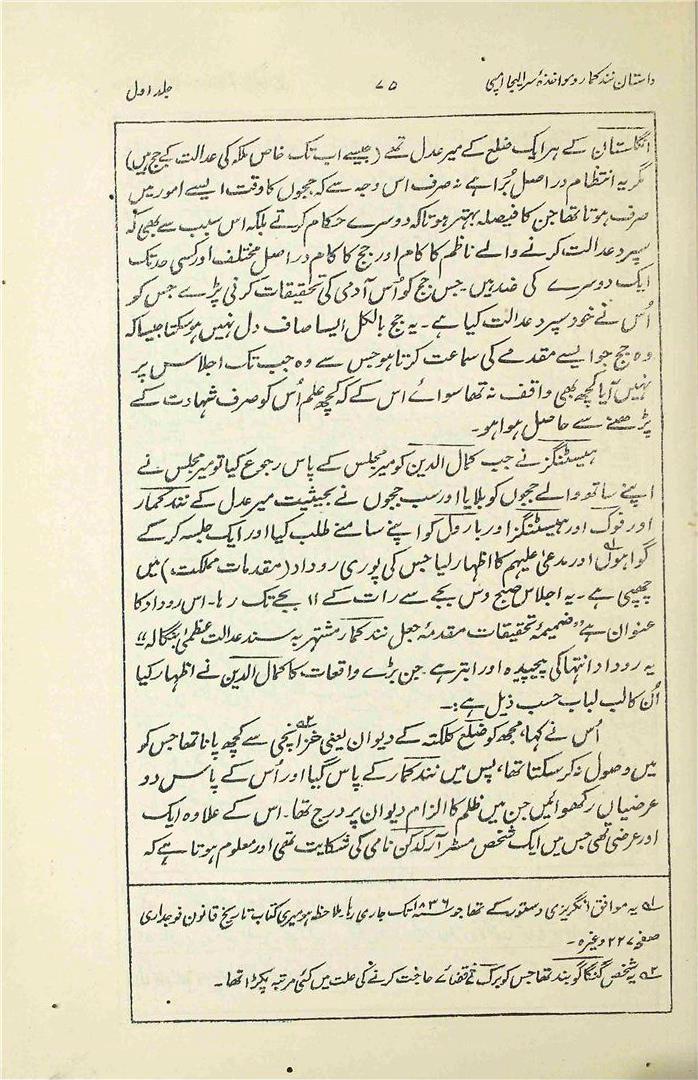 داستان نند کمار و مواخذۂ سر الیجا امپی ۷۵ جلد اول
انگلستان کے ہر ایک ضلع کے میر عدل تھے (جیسے اب تک خاص ملکہ کی عدالت کے جج ہیں)
مگر یہ انتظام در اصل بُرا ہے نہ صرف اس وجہ سے کہ ججوں کا وقت ایسے امور میں
صرف ہوتا تھا جن کا فیصلہ بہتر ہوتا کہ دوسرے حکام کرتے بلکہ اس سبب سے بھی کہ
سپرد عدالت کرنے والے ناظم کا کام اور جج کا کام در اصل مختلف اور کسی حد تک
ایک دوسرے کی ضد ہیں۔ جس جج کو اُس آدمی کی تحقیقات کرنی پڑے جس کو
اُس نے خود سپرد عدالت کیا ہے۔ یہ جج بالکل ایسا صاف دل نہیں ہو سکتا جیسا کہ
وہ جج جو ایسے مقدمے کی سماعت کرتا ہو جس سے وہ جب تک اجلاس پر
نہیں آیا کچھ بھی واقف نہ تھا سوائے اس کے کہ کچھ علم اُس کو صرف شہادت کے
پڑھنے سے حاصل ہوا ہو۔
ہیسٹنگز نے جب کمال الدین کو میر مجلس کے پاس رجوع کیا تو میر مجلس نے
اپنے ساتھ والے ججوں کو بلایا اور سب ججوں نے بحیثیت میر عدل کے نند کمار
اور فوک اور ہیسٹنگز اور بارول کو اپنے سامنے طلب کیا اور ایک جلسہ کر کے
گواہوں؂۱ اور مدعیٰ علیہم کا اظہار لیا جس کی پوری روداد (مقدمات مملکت) میں
چھپی ہے۔ یہ اجلاس صبح دس بجے سے رات کے ۱۱ بجے تک رہا۔ اس روداد کا
عنوان ہے "ضمیمۂ تحقیقات مقدمۂ جعل نند کمار مشتہر بہ سند عدالت عظمیٰ بنگالہ"
یہ روداد انتہا کی پیچیدہ اور ابتر ہے۔ جن بڑے واقعات کا کمال الدین نے اظہار کیا
اُن کا لب لباب حسب ذیل ہے:۔
اُس نے کہا، مجھ کو ضلع کلکتہ کے دیوان یعنی خزانچی؂۲ سے کچھ پانا تھا جس کو
میں وصول نہ کر سکتا تھا، پس میں نند کمار کے پاس گیا اور اُس کے پاس دو
عرضیاں رکھوائیں جن میں ظلم کا الزام دیوان پر درج تھا۔ اس کے علاوہ ایک
اور عرضی تھی جس میں ایک شخص مسٹر آرکڈکن نامی کی شکایت تھی اور معلوم ہوتا ہے کہ
؂۱ یہ موافق انگریزی دستور کے تھا جو ۱۸۳۶ تک جاری رہا۔ ملاحظہ ہو میری کتاب تاریخ قانون فوجداری
صفحہ ۲۲۷ وغیرہ۔
؂۲ یہ شخص گنگا گوبند تھا جس کو برک نے قضائے حاجت کرنے کی علت میں کئی مرتبہ پکڑا تھا۔